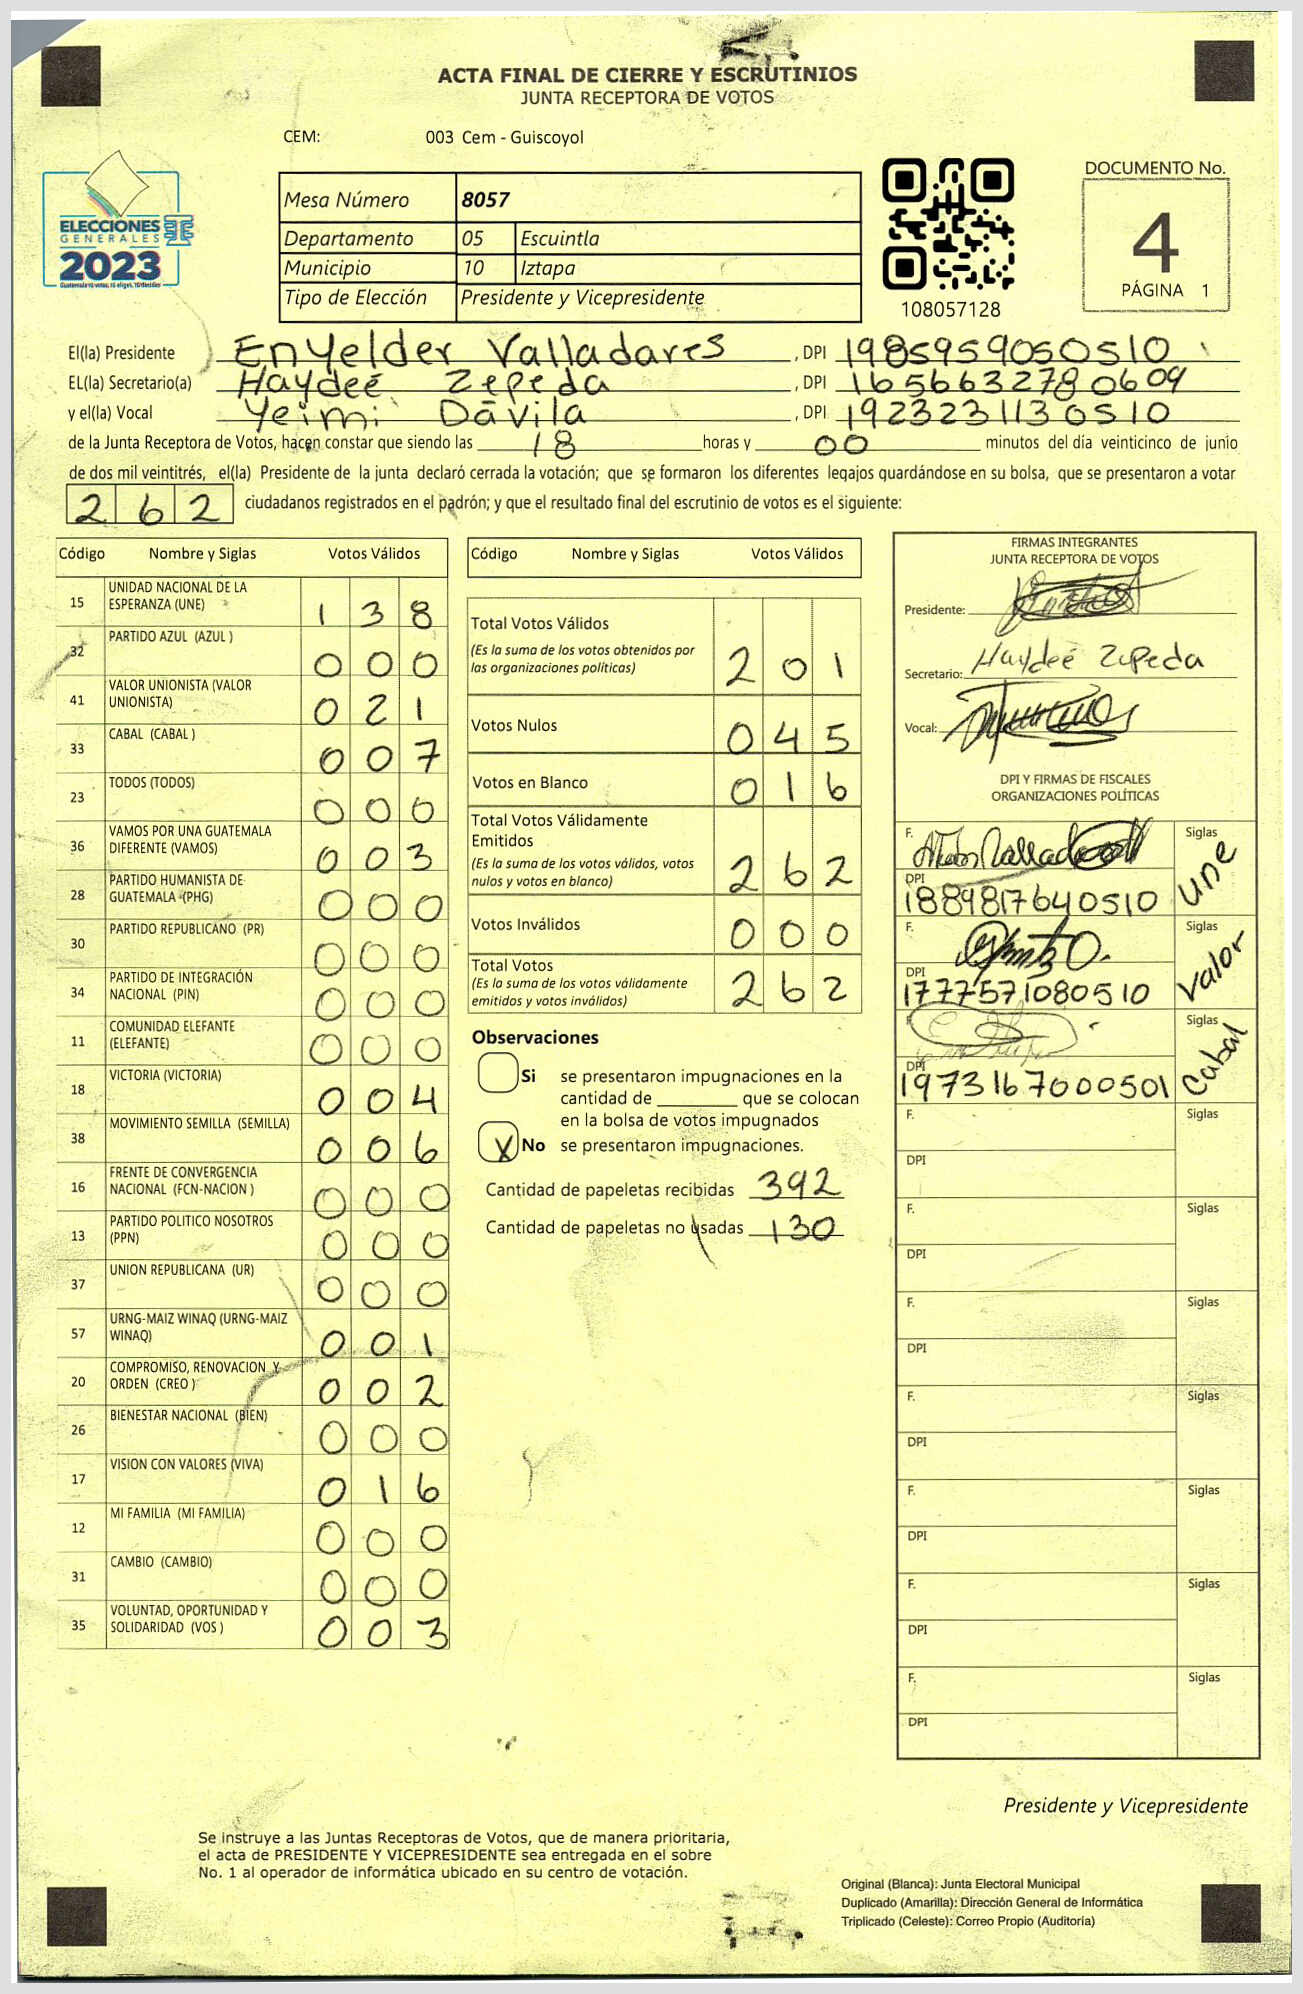 ACTA FINAL DE CIERRE Y ESCRUTINIOS
JUNTA RECEPTORA DE VOTOS
CEM: 003 Cem - Guiscoyol
ELECCIONES
GENERALES
2023
Mesa Número 8057
Departamento 05 Escuintla
Municipio 10 Iztapa
Tipo de Elección Presidente y Vicepresidente
108057128
DOCUMENTO No.
4
PÁGINA 1
El(la) Presidente Enyelder Valladares, DPI 1985959050510
EL(la) Secretario(a) Haydeé Zepeda, DPI 1656632780609
y el(la) Vocal Yeimi Dávila, DPI 1923231130510
de la Junta Receptora de Votos, hacen constar que siendo las 18 horas y 00 minutos del día veinticinco de junio
de dos mil veintitrés, el(la) Presidente de la junta declaró cerrada la votación; que se formaron los diferentes legajos quardándose en su bolsa, que se presentaron a votar
262 ciudadanos registrados en el padrón; y que el resultado final del escrutinio de votos es el siguiente:
Código Nombre y Siglas Votos Válidos
15 UNIDAD NACIONAL DE LA ESPERANZA (UNE) 138
32 PARTIDO AZUL (AZUL ) 000
41 VALOR UNIONISTA (VALOR UNIONISTA) 021
33 CABAL (CABAL ) 007
23 TODOS (TODOS) 000
36 VAMOS POR UNA GUATEMALA DIFERENTE (VAMOS) 003
28 PARTIDO HUMANISTA DE GUATEMALA (PHG) 000
30 PARTIDO REPUBLICANO (PR) 000
34 PARTIDO DE INTEGRACIÓN NACIONAL (PIN) 000
11 COMUNIDAD ELEFANTE (ELEFANTE) 000
18 VICTORIA (VICTORIA) 004
38 MOVIMIENTO SEMILLA (SEMILLA) 006
16 FRENTE DE CONVERGENCIA NACIONAL (FCN-NACION ) 000
13 PARTIDO POLITICO NOSOTROS (PPN) 000
37 UNION REPUBLICANA (UR) 000
57 URNG-MAIZ WINAQ (URNG-MAIZ WINAQ) 001
20 COMPROMISO, RENOVACION Y ORDEN (CREO ) 002
26 BIENESTAR NACIONAL (BIEN) 000
17 VISION CON VALORES (VIVA) 016
12 MI FAMILIA (MI FAMILIA) 000
31 CAMBIO (CAMBIO) 000
35 VOLUNTAD, OPORTUNIDAD Y SOLIDARIDAD (VOS ) 003
Código Nombre y Siglas Votos Válidos
Total Votos Válidos 201
(Es la suma de los votos obtenidos por
las organizaciones políticas)
Votos Nulos 045
Votos en Blanco 016
Total Votos Válidamente
Emitidos 262
(Es la suma de los votos válidos, votos
nulos y votos en blanco)
Votos Inválidos 000
Total Votos 262
(Es la suma de los votos válidamente
emitidos y votos inválidos)
Observaciones
Si se presentaron impugnaciones en la
cantidad de ________ que se colocan
en la bolsa de votos impugnados
X No se presentaron impugnaciones.
Cantidad de papeletas recibidas 392
Cantidad de papeletas no usadas 130
FIRMAS INTEGRANTES
JUNTA RECEPTORA DE VOTOS
Presidente:
Secretario: Haydeé Zepeda
Vocal:
DPI Y FIRMAS DE FISCALES
ORGANIZACIONES POLÍTICAS
F. Siglas une
DPI 1889817640510
F. Siglas Valor
DPI 1777571080510
F. Siglas Cabal
DPI 1973167000501
F. Siglas
DPI
F. Siglas
DPI
F. Siglas
DPI
F. Siglas
DPI
F. Siglas
DPI
F. Siglas
DPI
F. Siglas
DPI
Presidente y Vicepresidente
Se instruye a las Juntas Receptoras de Votos, que de manera prioritaria,
el acta de PRESIDENTE Y VICEPRESIDENTE sea entregada en el sobre
No. 1 al operador de informática ubicado en su centro de votación.
Original (Blanca): Junta Electoral Municipal
Duplicado (Amarilla): Dirección General de Informática
Triplicado (Celeste): Correo Propio (Auditoría)